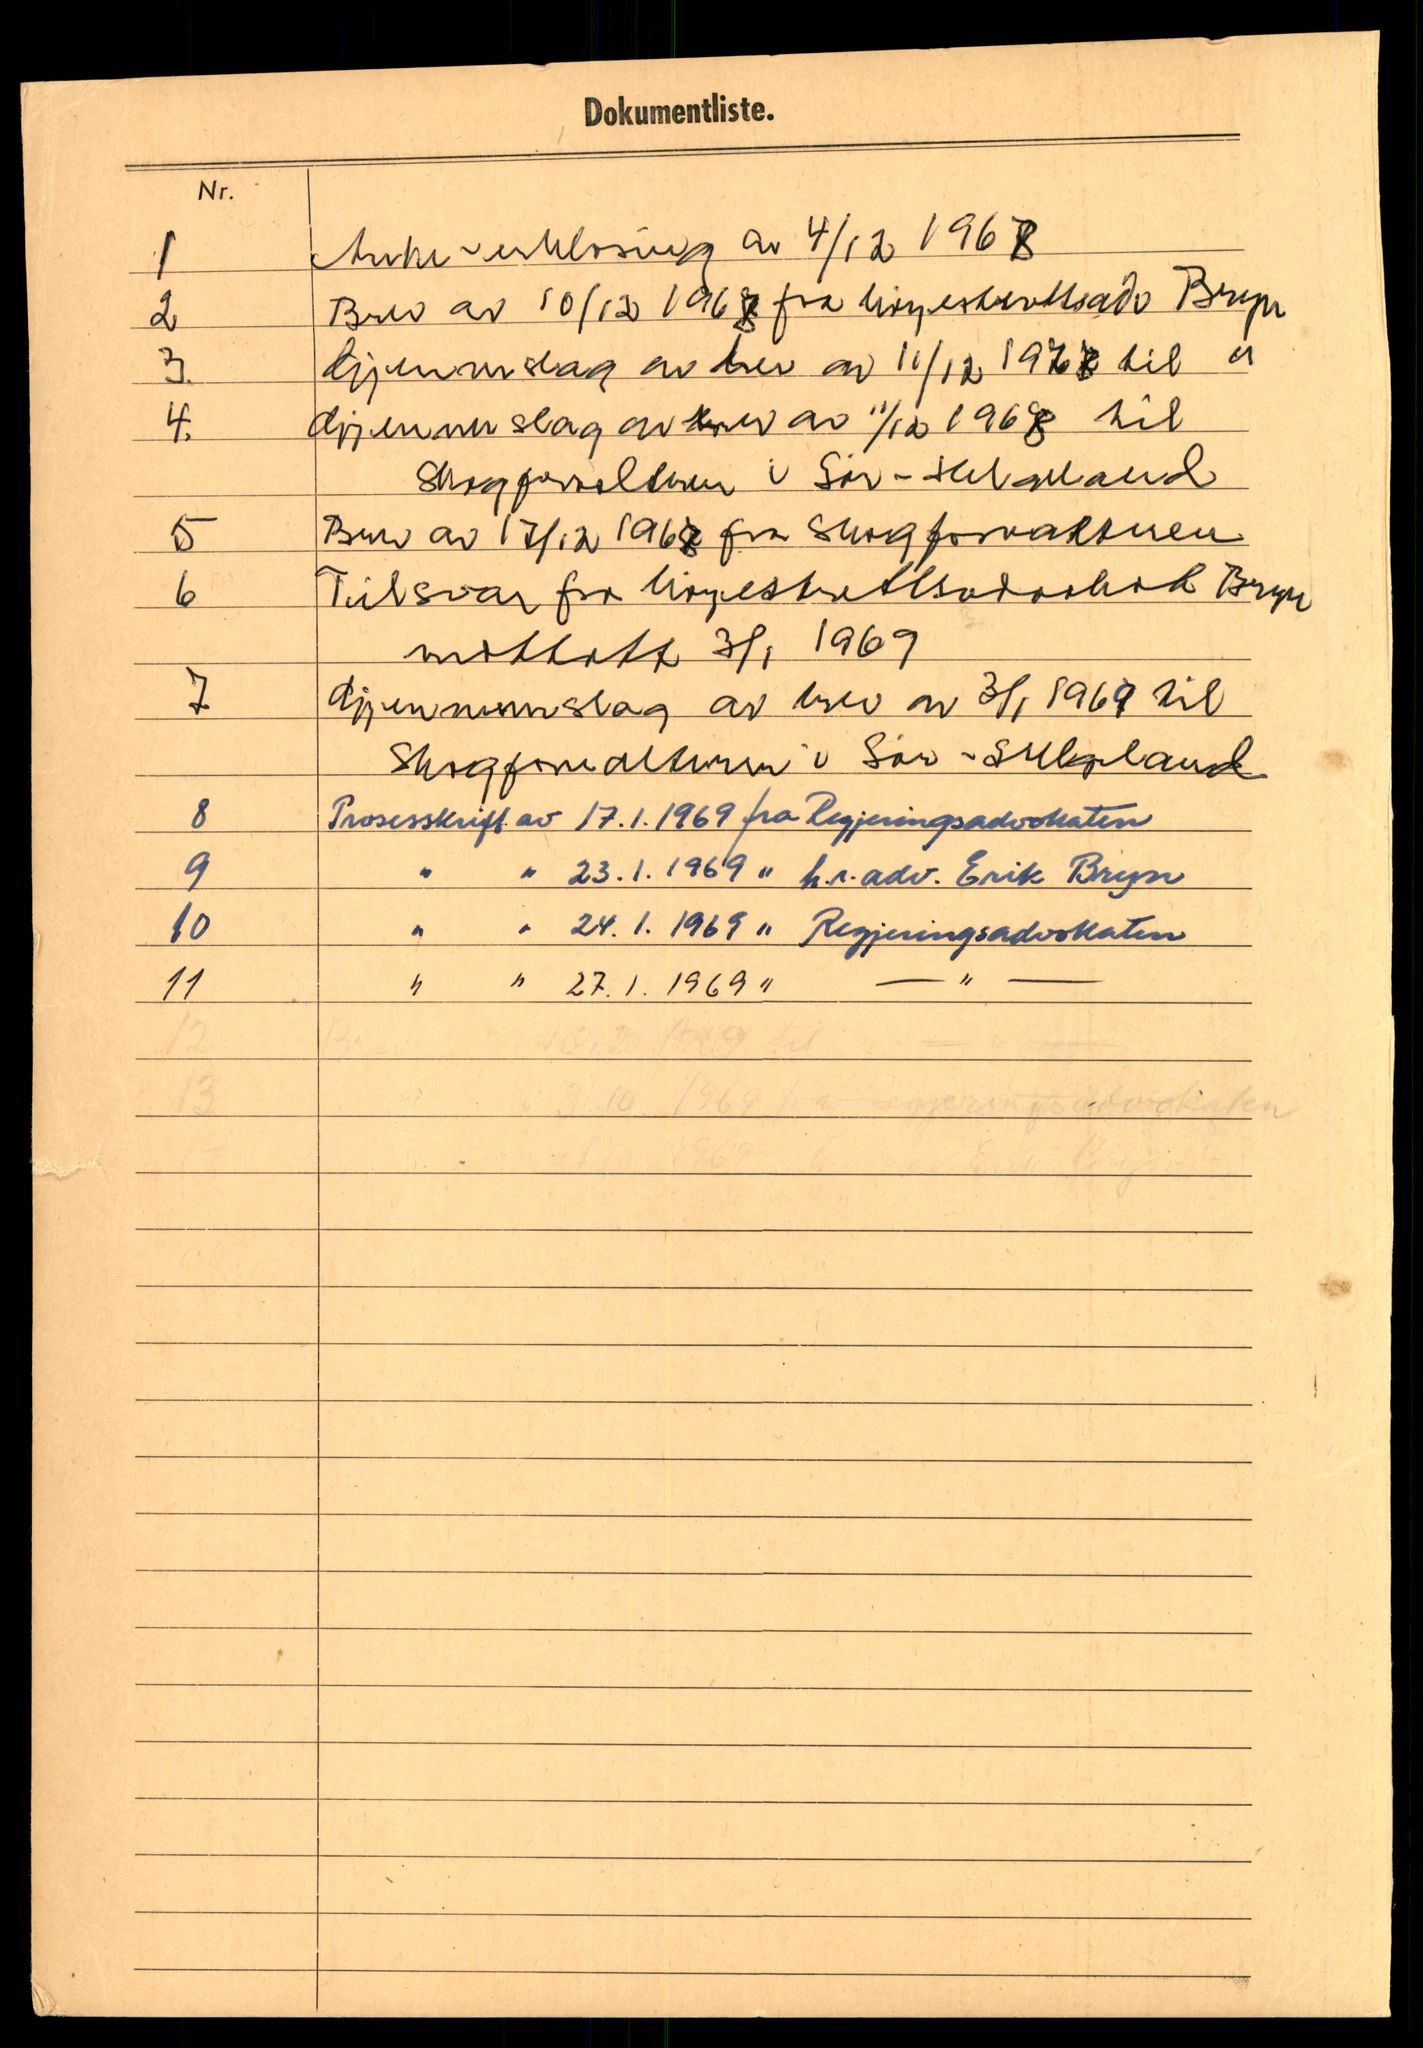 Dokumentliste.
Nr.
1 Ankeerklæring av 4/12 1968
2 Brev av 10/12 1968 fra höyesterettsadv Bryn
3. Gjennomslag av brev av 11/12 1968 til "
4. Gjennomslag av brev av 11/12 1968 til
Skogforvalteren i Sör-Helgeland
5 Brev av 17/12 1968 fra Skogforvalteren
6 Tilsvar fra höyesterettsadvokat Bryn
mottatt 3/1 1969
7 Gjennomslag av brev av 3/1 1969 til
Skogforvalteren i Sör-Helgeland
8 Prosesskrift av 17.1.1969 fra Regjeringsadvokaten
9 " " 23.1.1969 " h.r.adv. Erik Bryn
10 " " 24.1.1969 " Regjeringsadvokaten
11 " " 27.1.1969 " — " —
12 Brev 1969 til — " —
13 " " 3.10.1969 fra Regjeringsadvokaten
1969